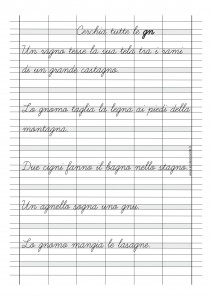 Cerchia tutte le gn
Un ragno tesse la sua tela tra i rami
di un grande castagno.
Lo gnomo taglia la legna ai piedi della
montagna.
Due cigni fanno il bagno nello stagno.
Un agnello sogna uno gnu.
Lo gnomo mangia le lasagne.